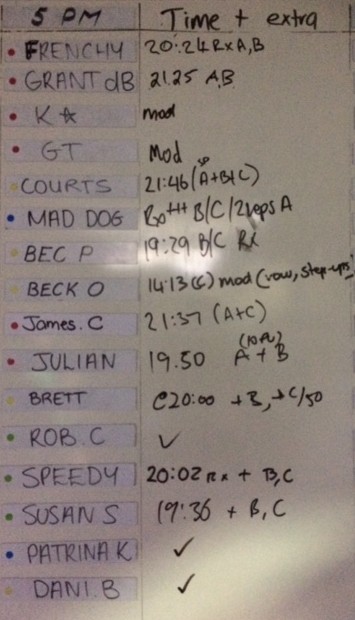 5 PM Time + extra
FRENCHY 20:24 Rx A,B
GRANT dB 21.25 A,B
K☆ mod
GT Mod
COURTS 21:46 (A+B+C)
MAD DOG Rx+++ B/C/2reps A
BEC P 19:29 B/C Rx
BECK O 14:13 (C) mod (row, step-ups)
James. C 21:37 (A+C)
JULIAN 19.50 A + B
BRETT C20:00 +B, →C/50
ROB. C ✓
SPEEDY 20:02 Rx + B,C
SUSAN S 19:36 + B, C
PATRINA K ✓
DANI. B ✓